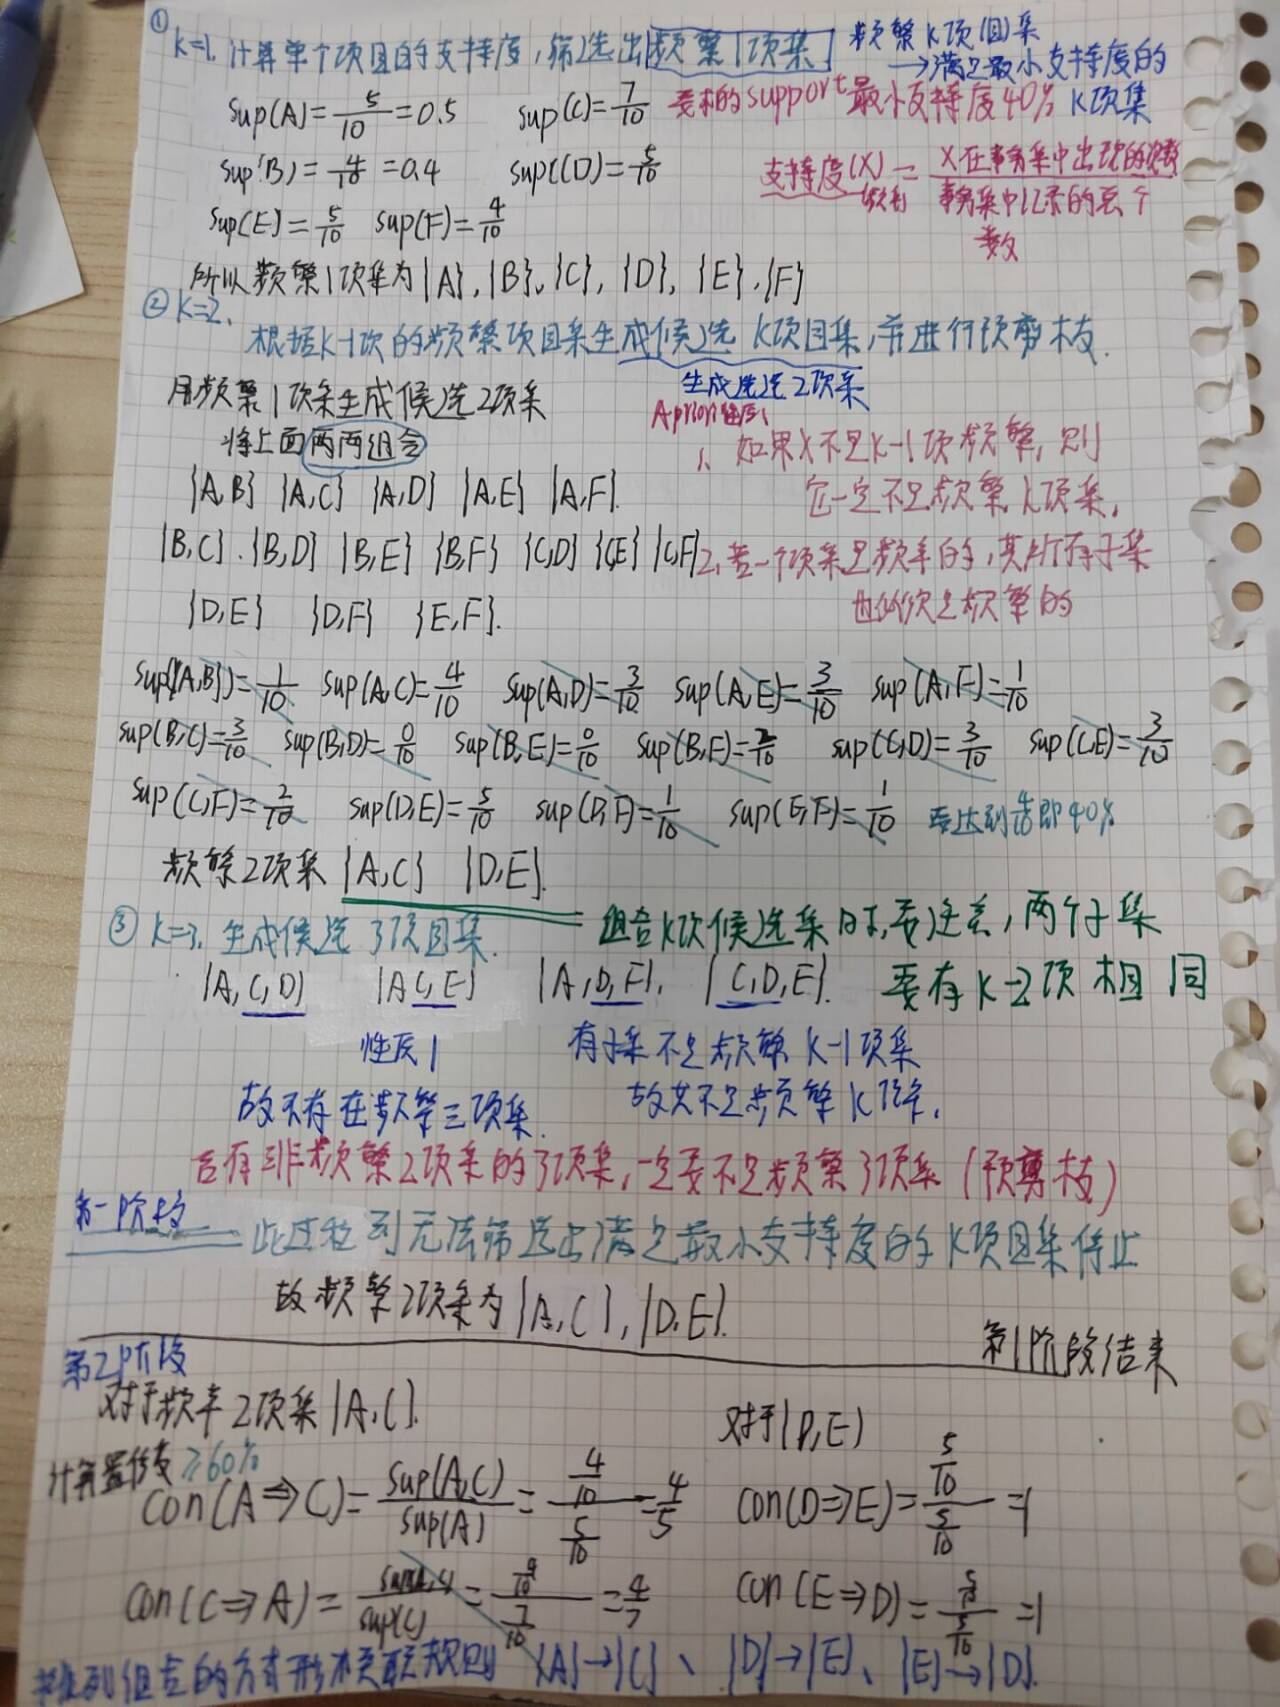 ① K=1. 计算单个项目的支持度,筛选出频繁1项集
频繁K项(目)集
→满足最小支持度的K项集
sup(A)=5/10=0.5 sup(C)=7/10
要求的support最小支持度40%
sup(B)=4/10=0.4 sup(D)=5/10
支持度(X)=X在事务集中出现的次数/事务集中记录的总个数
sup(E)=5/10 sup(F)=4/10
所以频繁1项集为{A},{B},{C},{D},{E},{F}
② K=2.
根据K-1次的频繁项目集生成候选K项目集,并进行预剪枝.
用频繁1项集生成候选2项集
生成候选2项集
将上面两两组合
Apriori性质
1、如果X不是K-1项频繁,则
它一定不是频繁K项集,
{A,B} {A,C} {A,D} {A,E} {A,F}.
{B,C}.{B,D} {B,E} {B,F} {C,D} {C,E} {C,F}
2、若一个项集是频繁的,其所有子集
也必须是频繁的
{D,E} {D,F} {E,F}.
sup({A,B})=1/10 sup(A,C)=4/10 sup(A,D)=3/10 sup(A,E)=3/10 sup(A,F)=1/10
sup(B,C)=3/10 sup(B,D)=0/10 sup(B,E)=0/10 sup(B,F)=2/10 sup(C,D)=3/10 sup(C,E)=3/10
sup(C,F)=2/10 sup(D,E)=5/10 sup(D,F)=1/10 sup(E,F)=1/10 要达到4/10即40%
频繁2项集{A,C} {D,E}.
③ K=3. 生成候选3项目集.
组合K次候选集时,要注意,两个子集
要有K-2项相同
{A,C,D} {A,C,E} {A,D,E}. {C,D,E}.
性质1
有子集不是频繁K-1项集
故其不是频繁K项集.
故不存在频繁三项集.
含有非频繁2项集的3项集,一定要不是频繁3项集(预剪枝)
第一阶段
此过程到无法筛选出满足最小支持度的K项目集停止
故频繁2项集为{A,C},{D,E}.
第1阶段结束
第2阶段
对于频繁2项集{A,C}.
对于{D,E}
计算置信度≥60%
con(A⇒C)=sup(A,C)/sup(A)=(4/10)/(5/10)=4/5 con(D⇒E)=(5/10)/(5/10)=1
con(C⇒A)=sup(A,C)/sup(C)=(4/10)/(7/10)=4/7 con(E⇒D)=(5/10)/(5/10)=1
组合的方式形成关联规则 {A}→{C}、{D}→{E}、{E}→{D}.